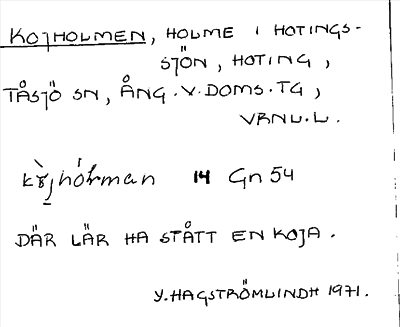 KOJHOLMEN, HOLME I HOTINGS-
SJÖN, HOTING,
TÅSJÖ SN, ÅNG.V.DOMS.TG,
VRNL.L.
14 Gn 54
DÄR LÄR HA STÅTT EN KOJA.
Y.HAGSTRÖMLINDH 1971.